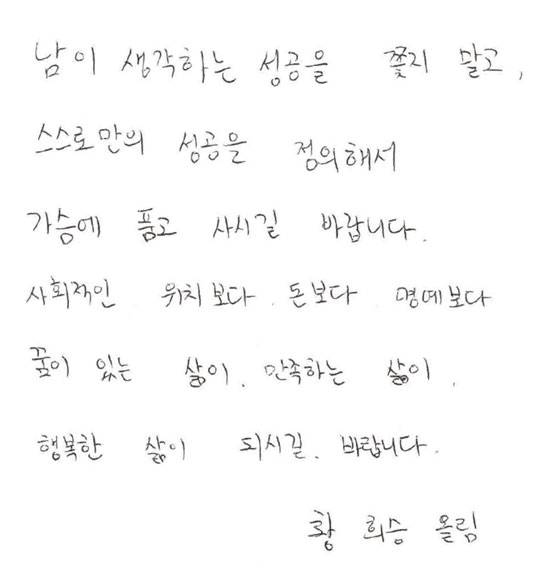 남이 생각하는 성공을 쫓지 말고,
스스로만의 성공을 정의해서
가슴에 품고 사시길 바랍니다.
사회적인 위치보다. 돈보다. 명예보다
꿈이 있는 삶이. 만족하는 삶이.
행복한 삶이 되시길. 바랍니다.
황희승 올림